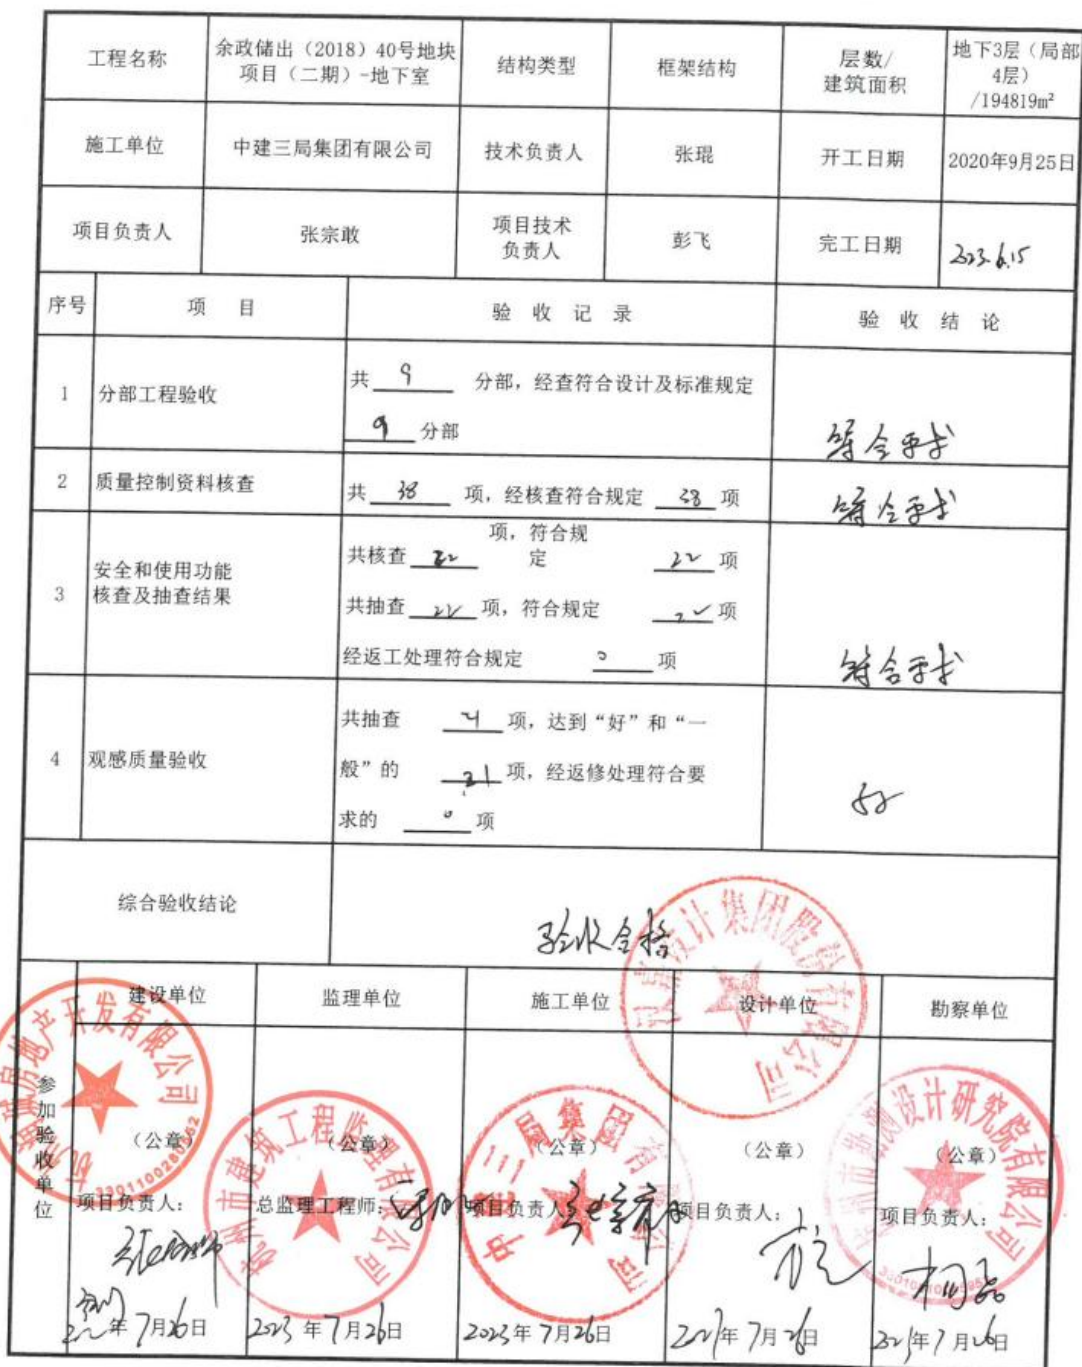 工程名称
余政储出（2018）40号地块
项目（二期）-地下室
结构类型
框架结构
层数/
建筑面积
地下3层（局部
4层）
/194819m²
施工单位
中建三局集团有限公司
技术负责人
张琨
开工日期
2020年9月25日
项目负责人
张宗敢
项目技术
负责人
彭飞
完工日期
2023.6.15
序号
项 目
验 收 记 录
验 收 结 论
1
分部工程验收
共 9 分部，经查符合设计及标准规定
9 分部
符合要求
2
质量控制资料核查
共 38 项，经核查符合规定 38 项
符合要求
3
安全和使用功能
核查及抽查结果
项，符合规
共核查 22 定 22 项
共抽查 22 项，符合规定 22 项
经返工处理符合规定 0 项
符合要求
4
观感质量验收
共抽查 21 项，达到“好”和“一
般”的 21 项，经返修处理符合要
求的 0 项
好
综合验收结论
验收合格
参加验收单位
建设单位
监理单位
施工单位
设计单位
勘察单位
（公章）
（公章）
（公章）
（公章）
（公章）
项目负责人：
总监理工程师：
项目负责人：
项目负责人：
项目负责人：
年 7月26日
2023年 7月26日
2023年 7月26日
年 7月26日
年 7月26日
房地产开发有限公司
杭州市建筑工程监理有限公司
中 三局集团有限公司
设计集团股份有限公司
勘测设计研究院有限公司